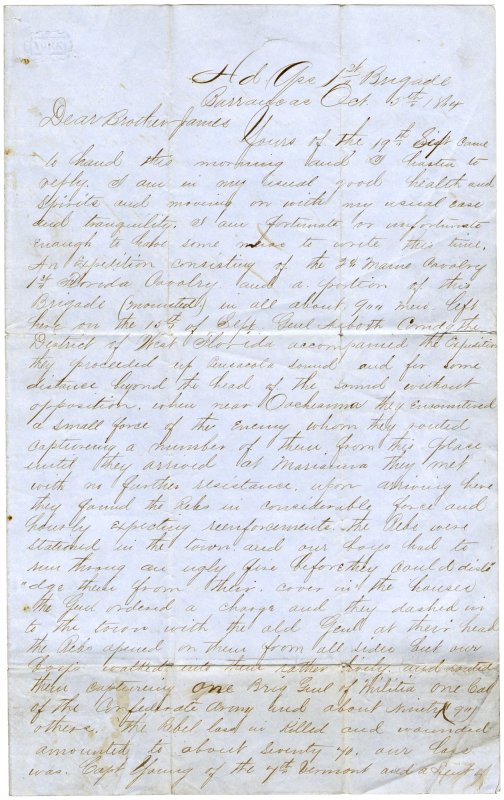 Hd Qrs 1st Brigade
Barrancas Oct. 5th 1864
Dear Brother James
Yours of the 19th Sept came
to hand this morning and I hasten to
reply. I am in my usual good health and
Spirits and moving on with my usual ease
and tranquility. I am fortunate or unfortunate
enough to have some news to write this time.
An Expedition consisting of the 2d Maine Cavalry
1st Florida Cavalry and a portion of this
Brigade (mounted) in all about 900 men left
here on the 15th of Sept, Genl Asboth Comdg the
District of West Florida accompanied the Expedition
they proceeded up Pensacola sound and for some
distance beyond the head of the sound without
opposition. when near they encountered
a small force of the Enemy whom they routed
capturing a number of them from this place
until they arrived at Marianna they met
with no further resistance. upon arriving here
they found the Rebs in considerable force and
hourly expecting reenforcements. the Rebs were
stationed in the town and our boys had to
run through an ugly fire before they could dislo
"dge them from their cover in the houses
the Genl ordered a charge and they dashed in
to the town with the old Genl at their head
the Rebs opened on them from all sides but our
boys walked into them rather and routed
them capturing one Brig Genl of Militia one Col
of the Confederate Army and about Ninety (90)
others. the Rebel loss in Killed and wounded
amounted to about Seventy 70. our loss
was. Capt Young of the 7th Vermont and a Lieut of